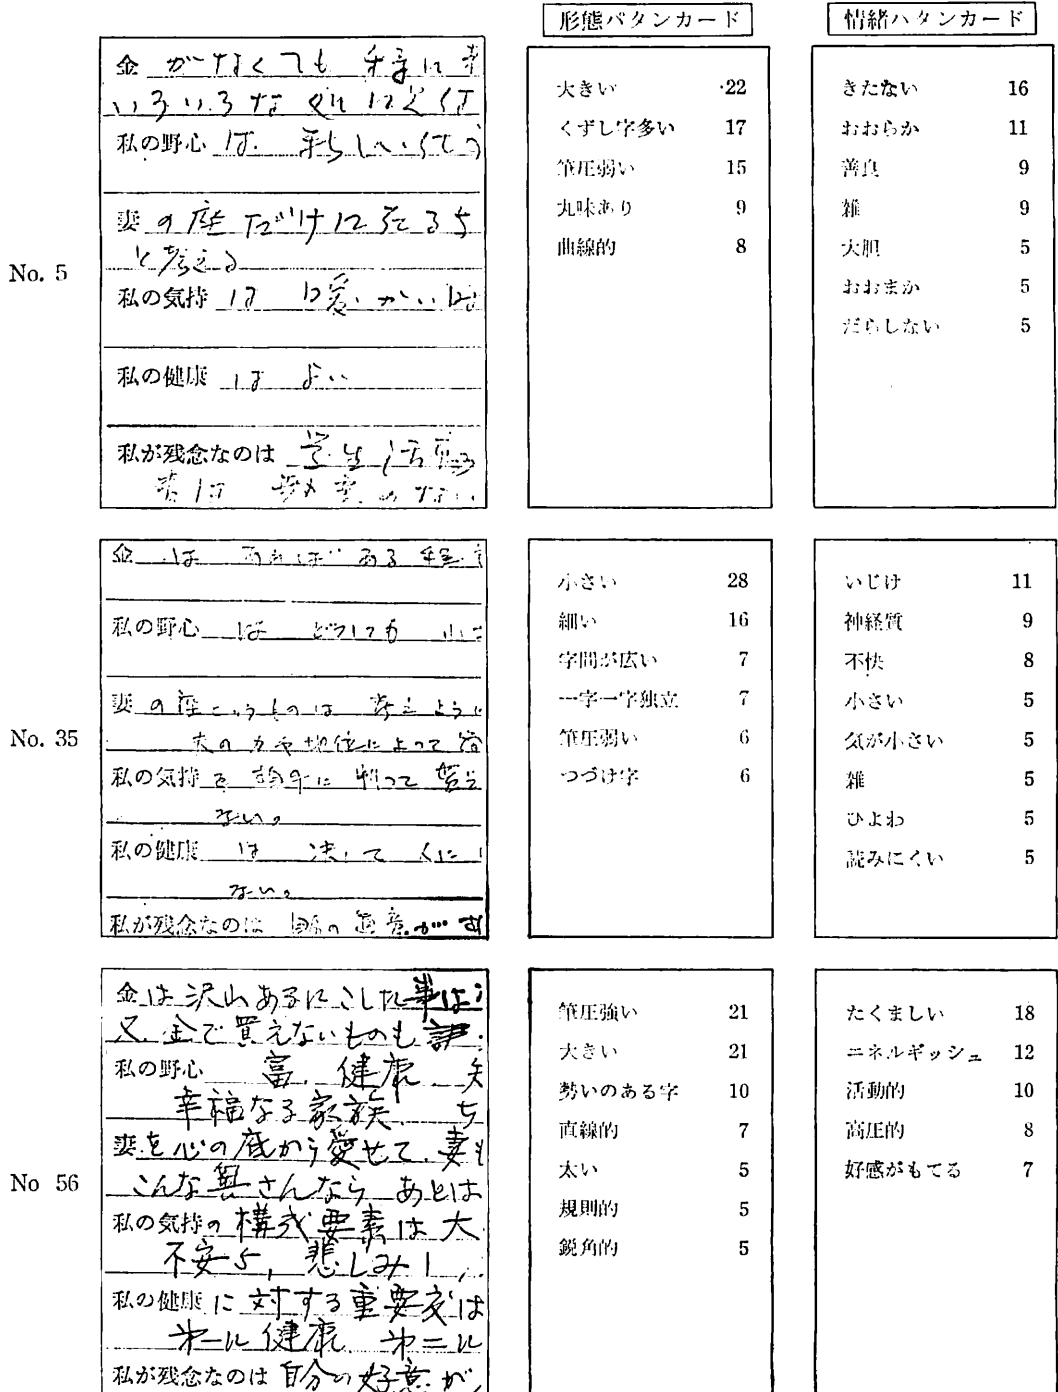 形態パタンカード
情緒パタンカード
No. 5
金 がなくても
いろいろな
私の野心 は.
妻 の座だけに
と考える
私の気持 は
私の健康 は よい
私が残念なのは 学生活
大きい 22
くずし字多い 17
筆圧弱い 15
丸味あり 9
曲線的 8
きたない 16
おおらか 11
善良 9
雑 9
大胆 5
おおまか 5
だらしない 5
No. 35
金 は あれば ある程
私の野心 は どうしても
妻 の座というものは 考えように
夫の力や地位によって
私の気持 を
ない。
私の健康 は 決して
ない。
私が残念なのは
小さい 28
細い 16
字間が広い 7
一字一字独立 7
筆圧弱い 6
つづけ字 6
いじけ 11
神経質 9
不快 8
小さい 5
気が小さい 5
雑 5
ひよわ 5
読みにくい 5
No 56
金は沢山あるにこした事は
又、金で買えないものも
私の野心 富、健康
幸福なる家族、
妻を心の底から愛せて、妻も
こんな奥さんなら あとは
私の気持の構成要素は大
不安5, 悲しみ1,
私の健康に対する重要度は
才一に健康 才二に
私が残念なのは自分の好意が
筆圧強い 21
大きい 21
勢いのある字 10
直線的 7
太い 5
規則的 5
鋭角的 5
たくましい 18
エネルギッシュ 12
活動的 10
高圧的 8
好感がもてる 7